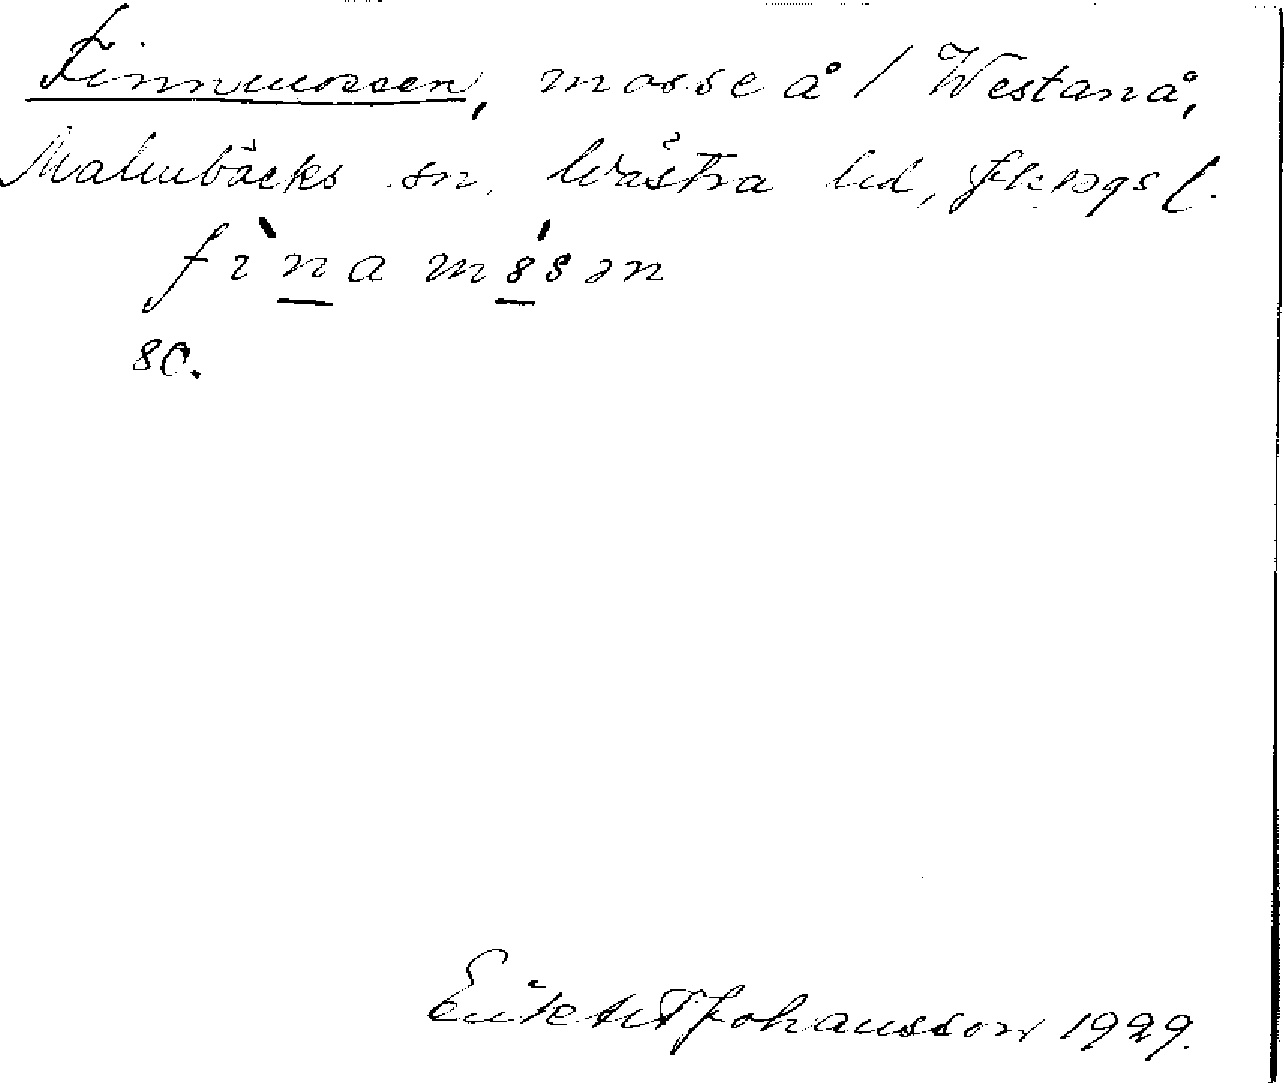 Finnmossen, mosse å / Westanå,
Malmbäcks sn, Västra hd, Jkpgs l.
fìnamósən
80.
Johansson 1929.